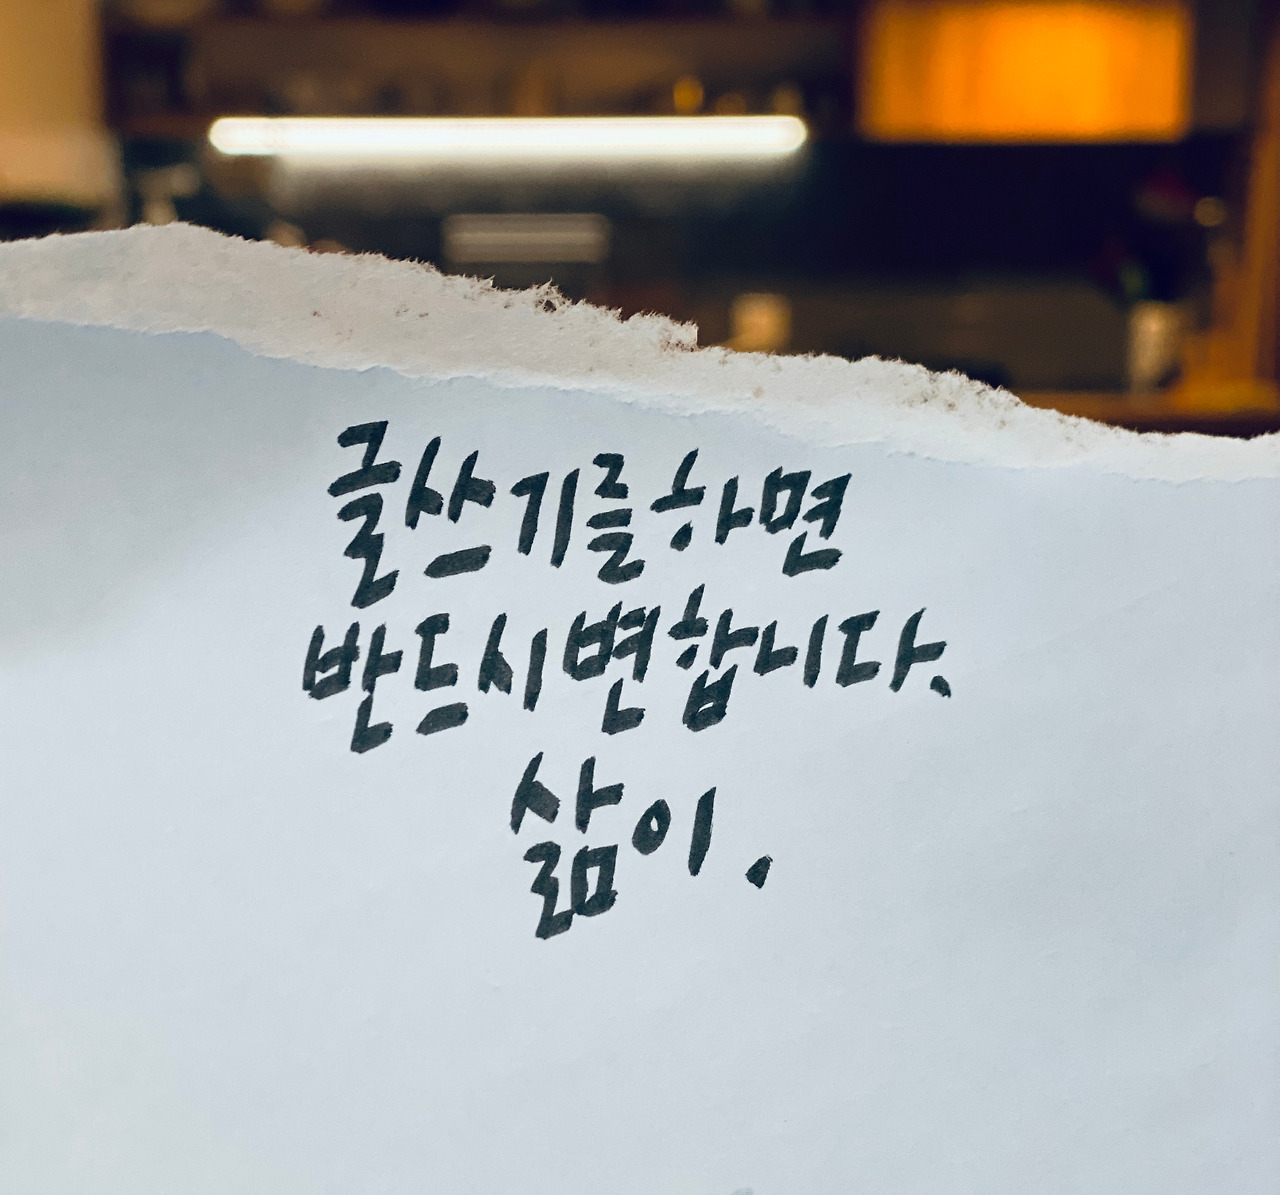 글쓰기를하면
반드시변합니다.
삶이.